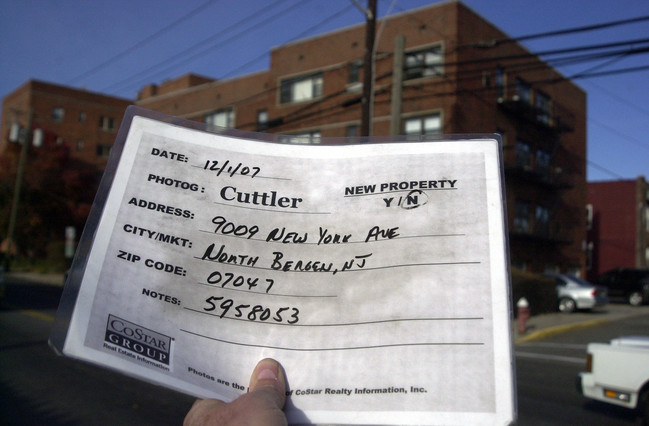 DATE: 12/1/07
PHOTOG: Cuttler
NEW PROPERTY
Y / N
ADDRESS: 9009 NEW YORK AVE
CITY/MKT: NORTH BERGEN, NJ
ZIP CODE: 07047
NOTES: 5958053
COSTAR
GROUP
Real Estate Information
Photos are the of CoStar Realty Information, Inc.